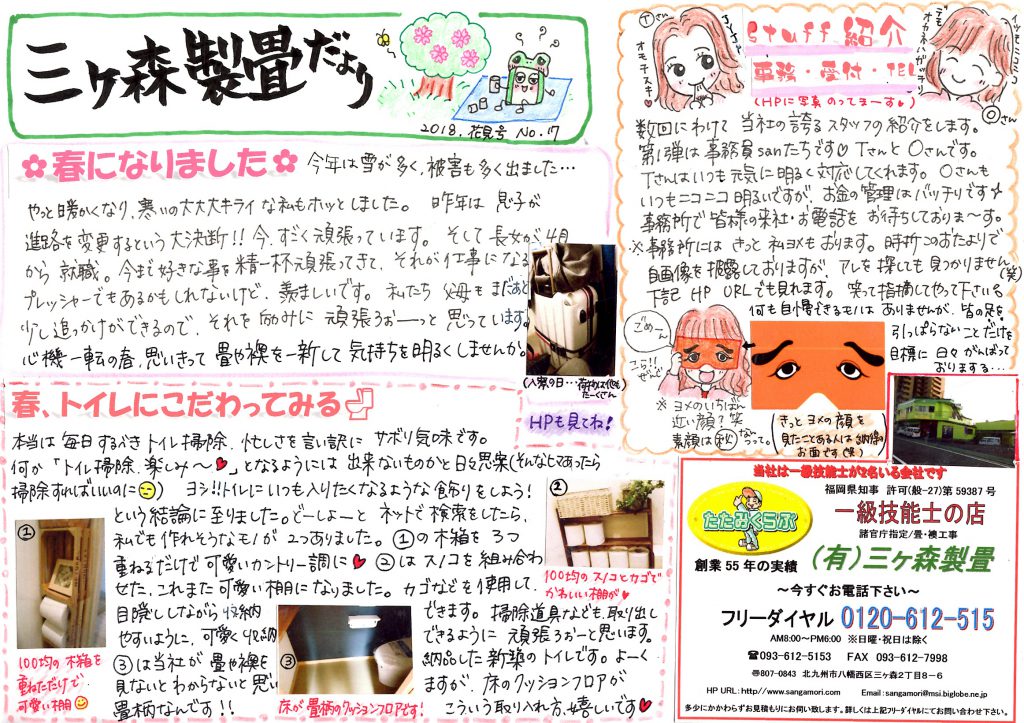 三ヶ森製畳だより
2018.花見号 No.17
春になりました
今年は雪が多く、被害も多く出ました…
やっと暖かくなり、寒いの大大大キライな私もホッとしました。 昨年は 息子が
進路を変更するという大決断!!今、すごく頑張っています。 そして長女が4月
から 就職。今まで好きな事を精一杯頑張ってきて、それが仕事になる
プレッシャーでもあるかもしれないけど、羨ましいです。 私たち 父母も まだあと
少し追っかけができるので、それを励みに 頑張ろおーっと 思っています。
心機一転の春、思いきって 畳や襖を一新して 気持ちを明るくしませんか。
(入寮の日…荷物は他も
たーくさん
HPも見てね!
春、トイレにこだわってみる
本当は 毎日するべき トイレ掃除、忙しさを言い訳に サボり気味です。
何か「トイレ掃除、楽しみ〜♥」となるようには 出来ないものかと日々思案(そんなヒマあったら
掃除すればいいのに) ヨシ!!トイレにいつも入りたくなるような 飾りをしよう!
という結論に至りました。どーしよーと ネットで検索をしたら、
私でも作れそうなモノが 2つありました。 ①の木箱を 3つ
重ねるだけで 可愛いカントリー調に♥ ②は スノコを 組み合わ
せた、これまた可愛い棚になりました。カゴなどを使用して、
目隠ししながら 収納
できます。 掃除道具なども、取り出し
やすいように、可愛く収納
できるように 頑張ろおーと思います。
③は当社が 畳や襖を
納品した 新築のトイレです。よーく
見ないとわからないと思い
ますが、床のクッションフロアが
畳柄なんです!!
こういう取り入れ方、嬉しいです♥
①
100均の木箱を
重ねただけで
可愛い棚
②
100均のスノコとカゴで
かわいい棚が♥
③
床が畳柄のクッションフロアです!
Tさん
オモテスキ♥
Stuff紹介
事務・受付・TEL
(HPに写真のってまーす♥)
イツモニコニコ
デモ
オカネハバッチリ
Oさん
数回にわけて 当社の誇るスタッフの紹介をします。
第1弾は事務員sanたちです♡ TさんとOさんです。
Tさんはいつも元気に明るく対応してくれます。Oさんも
いつもニコニコ明るいですが、お金の管理はバッチリです
事務所で皆様の来社・お電話をお待ちしておりま〜す。
※事務所には きっと 私ヨメもおります。時折このおたよりで
自画像を披露しておりますが、アレを探しても見つかりません(笑)
下記 HP URLでも見れます。 笑って指摘してやって下さい
何も自慢できるモノは ありませんが、皆の足を
引っぱらないことだけを
目標に 日々がんばって
おりまする…
ごめーん
こら!!
ぜんぶ
※ヨメのいちばん
近い顔?笑
素顔は㊙なって。
きっとヨメの顔を
見たことある人は納得の
お面です(笑)
当社は一級技能士が2名いる会社です
福岡県知事 許可(般-27)第59387号
一級技能士の店
諸官庁指定/畳・襖工事
たたみくらぶ
創業55年の実績
(有)三ヶ森製畳
~今すぐお電話下さい~
フリーダイヤル 0120-612-515
AM8:00~PM6:00 ※日曜・祝日は除く
☎093-612-5153 FAX 093-612-7998
〒807-0843 北九州市八幡西区三ヶ森2丁目8-6
HP URL:http://www.sangamori.com Email:sangamori@msi.biglobe.ne.jp
多少にかかわらずお見積もりにお伺い致します。詳しくは上記フリーダイヤルにてお問い合わせ下さい。